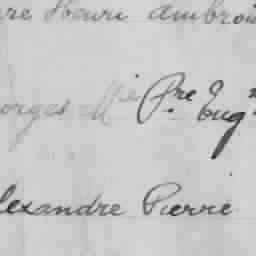 re Henri Ambroi
orges Mie Pre Eugn
lexandre Pierre